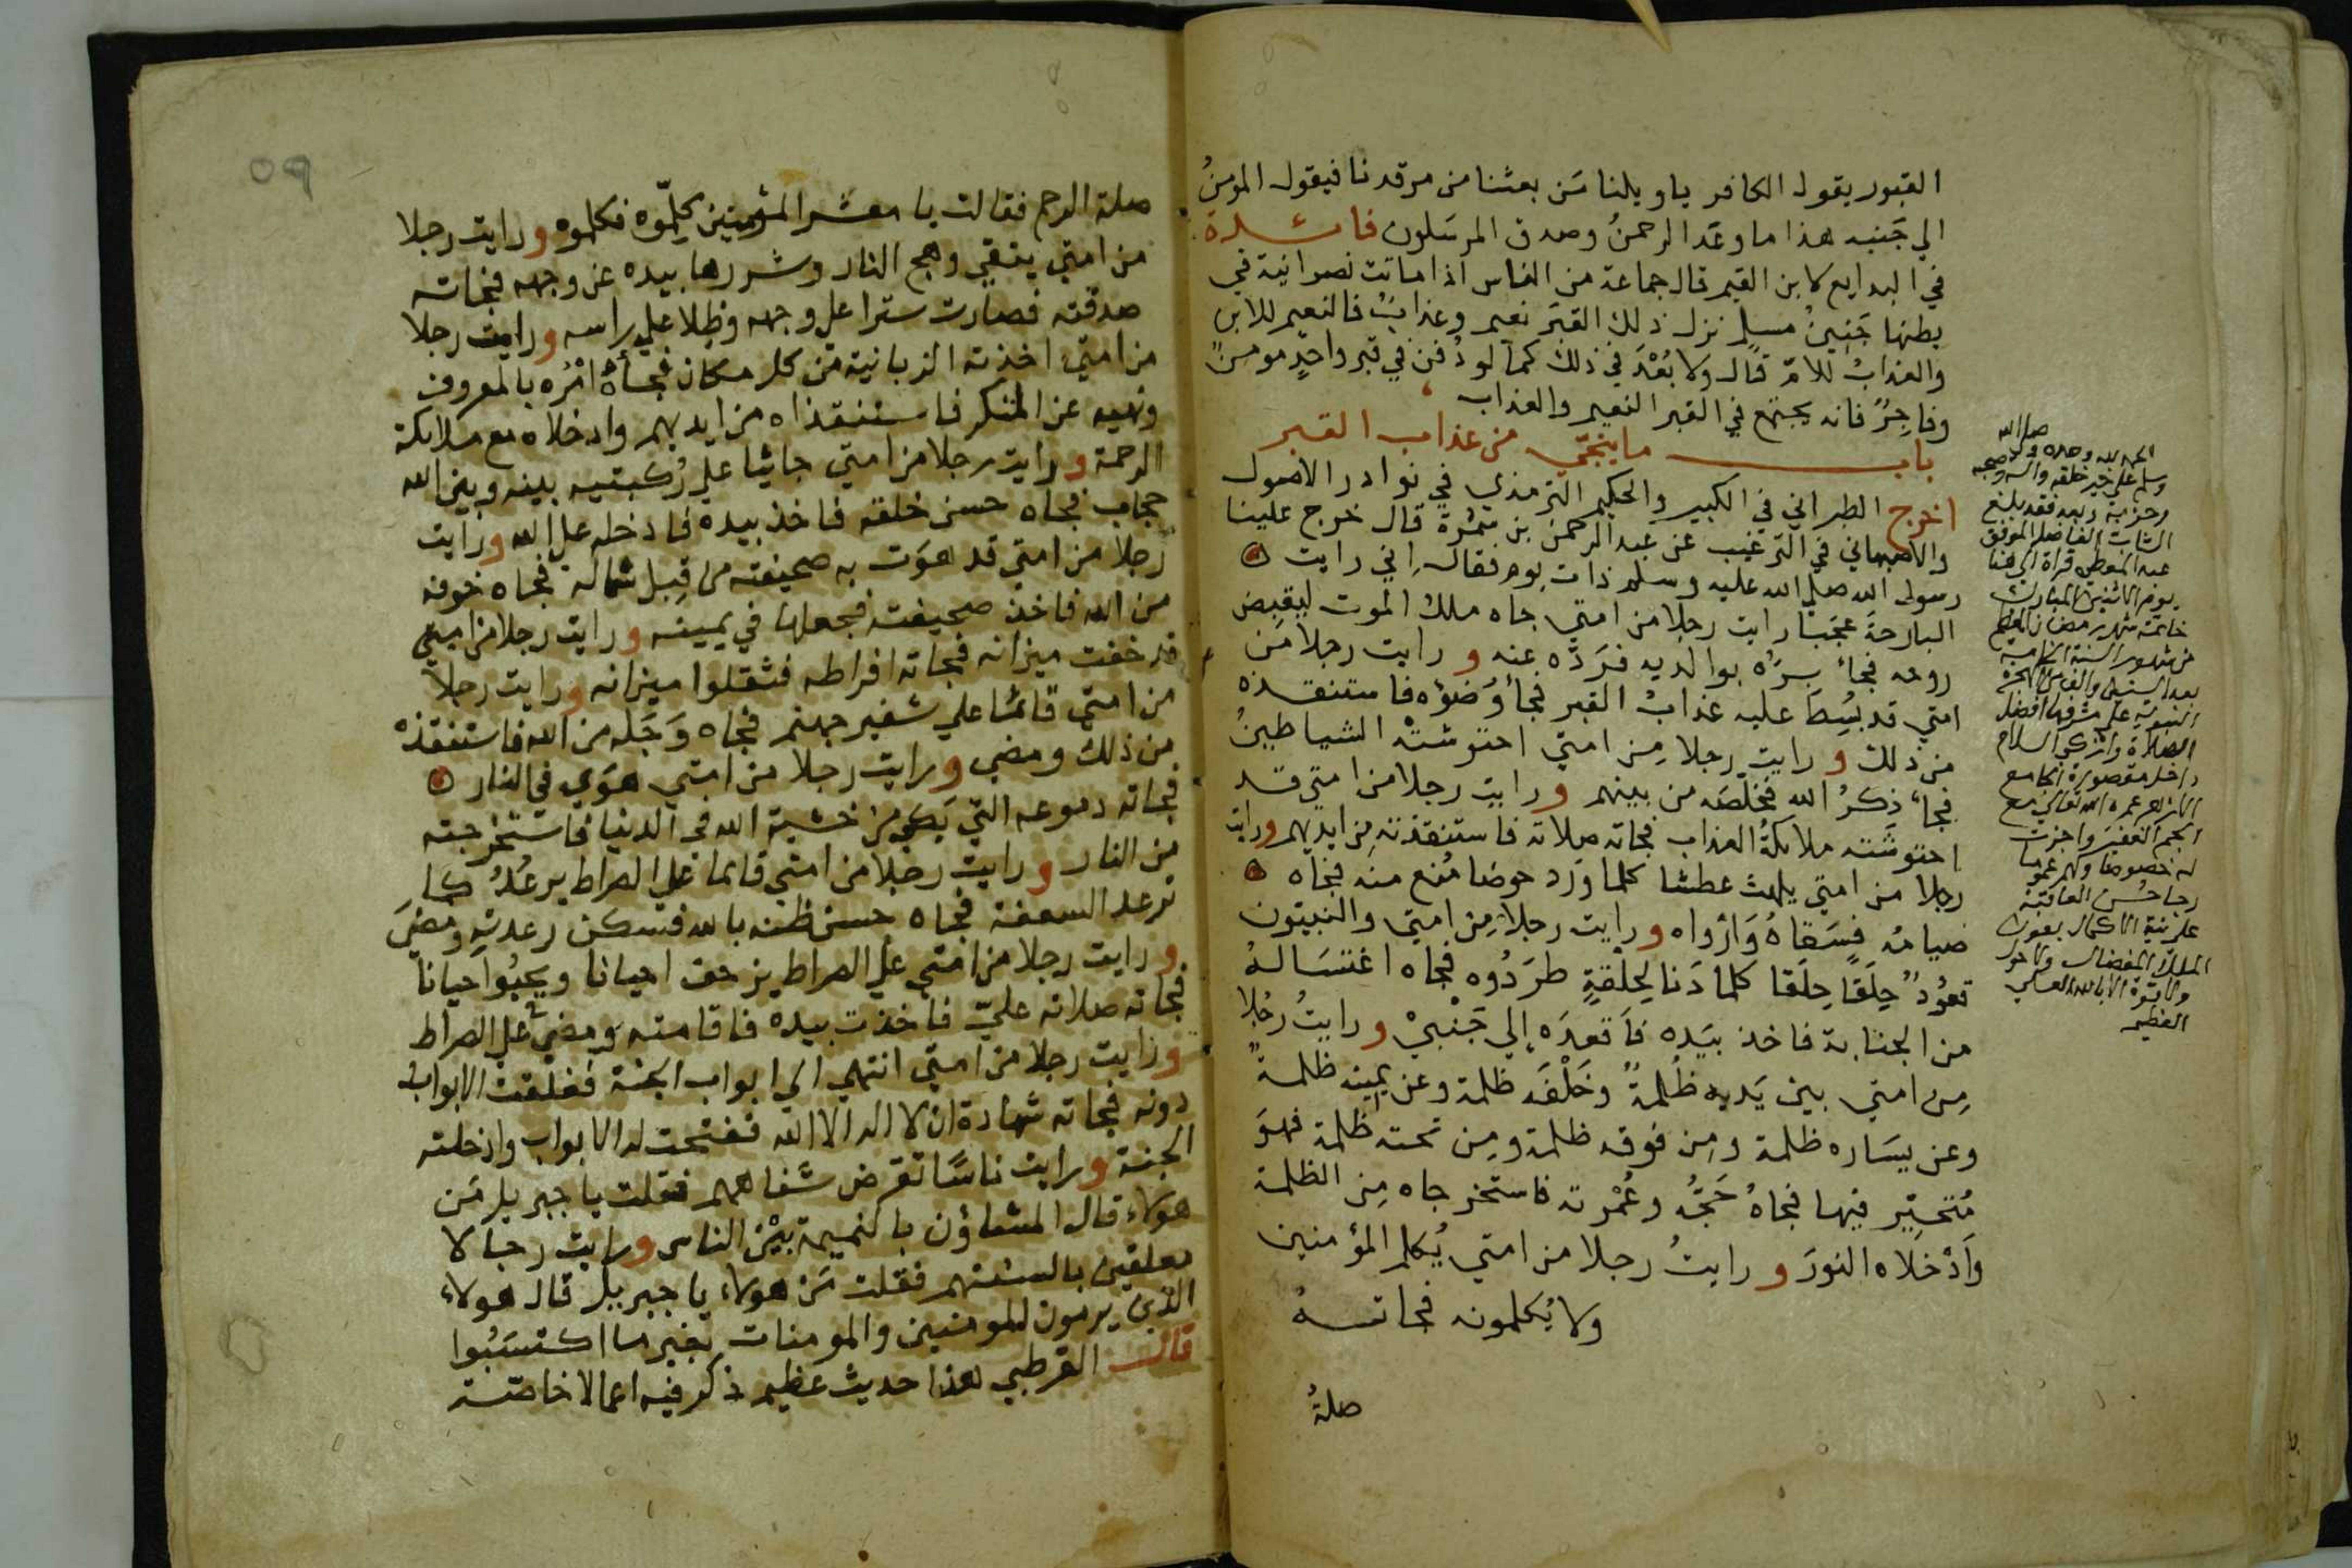 القبور يقول الكافر ياويلنا مَن بعثنا من مرقدنا فيقول المؤمنُ
الي جَنبه هذا ما وعَد الرحمنُ وصدق المرسَلون فائدة
في البدايع لابن القيم قال جماعة من الناس اذا ماتت نصرانية في
بطنها جَنِينُ مسلمٍ نزل ذلك القبَر نعيم وعذابٌ فالنعيم للابن
والعذابُ للامّ قال ولا بُعْدَ في ذلك كما لو دُفن في قبر واحدٍ مومنٌ
وفاجِرٌ فانه يجتمع في القبر النعيم والعذاب
باب ما ينجّي من عذاب القبر
اخرج الطبراني في الكبير والحكيم الترمذي في نوادر الاصول
والاصبهاني في الترغيب عن عبد الرحمن بن سَمُرة قال خرج علينا
رسول الله صلي الله عليه وسلم ذات يوم فقال اِني رايت
البارحةَ عجَبًا رايت رجلا من امتي جاه ملك الموت ليقبض
روحه فجاءَ بِرُّه بوالديه فرَدَّه عنه و رايت رجلا مَن
امتي قد بُسِطَ عليه عذابُ القبر فجأ وُضوُه فاستنقذه
من ذلك و رايت رجلا مِن امتي احتوشتْهُ الشياطينُ
فجاءَ ذكرُ الله فخلّصَه من بينهم و رايت رجلا من امتي قد
احتوشَته ملايكةُ العذاب فجاته صلاته فاستنقذته مِن ايديهم ورايت
رجلا من امتي يلهث عطشا كلما وَرَد حوضا مُنع منه فجاه
صيامُه فَسَقاهُ وَاَرْواه ورايت رجلا مِن امتي والنبيون
قعُودٌ حِلَقًا حِلَقا كلما دَنا لِحلْقةٍ طرَدُوه فجاه اغتسَالهُ
من الجنابة فاخذ بيَده فاَقعدَه اِلي جَنْبيْ و رايتُ رجُلا
مِن امتي بين يَديه ظُلمةٌ وخَلْفَه ظلمة وعن يمينه ظلمةٌ
وعن يسَاره ظلمة ومِن فوقه ظلمة ومِن تحته ظلمة فهوَ
مُتحيِّر فيها فجاهُ حَجُّه وعُمْرته فاستخرجاه مِن الظلمة
وَاَدْخلاه النورَ و رايتُ رجلا من امتي يُكلم المؤمنين
ولا يُكلمونه فجاتــهُ
صلةُ
الحمد لله وحده وصلي الله
وسلم علي خير خلقه واله وصحبه
وحزبه وبعد فقد بلغ
الشاب الفاضل الموفق
عبد المعطي قراة الي هنا
يوم الاثنين المبارك
خاتمة شهر رمضان المعظم
من شهور السنة الخامسة
بعد الستين والف من الهجرة
النبوية علي مشرفها افضل
الصلاة وازكي السلام
داخل مقصورة الجامع
الازهر عمره الله تعالي مع
الجم الغفير واجزت
له خصوصا ولهم عموما
رجا حُسن العاقبة
علي نية الاكمال بعون
الملك المفضال ولا حول
ولا قوة الا بالله العلي
العظيم
٥٩
صلة الرحم فقالت يا معشر المؤمنين كلّموه فكلموه و رايت رجلا
من امتي يتقي وهج النار وشررها بيده عن وجهه فجاته
صدقته فصارت سترا علي وجهه وظِلا علي راسه و رايت رجلا
من امتي اخذته الزبانية من كل مكان فجأهُ امْرُه بالمعروف
ونهيه عن المنكر فاستنقذاه من ايديهم وادخلاه مع ملايكة
الرحمة و رايت رجلا من امتي جاثيا علي رُكبتيه بينه وبين الله
حجاب فجاه حسن خلقه فاخذ بيده فادخله علي الله و رايت
رَجلا من امتي قد هوَت به صحيفته من قِبل شماله فجاه خوفه
من الله فاخذ صحيفته فجعلها في يمينه و رايت رجلا من امتي
قد خفت ميزانه فجاته افراطه فثقلوا ميزانه و رايت رجلا
من امتي قائما علي شفير جهنم فجاه وَجَله من الله فاستنقذه
من ذلك ومضي و رايت رجلا من امتي هوَي في النار
فجاته دموعه التي بَكي من خشية الله في الدنيا فاستخرجته
من النار و رايت رجلا من امتي قايما علي الصراط يرعُدُ كما
ترعد السعفة فجاه حسن ظنه بالله فسكن رعدته ومضيَ
و رايت رجلا من امتي علي الصراط يزحف احيانا ويحبُوا احيانا
فجاته صلاته عليّ فاخذت بيده فاقامته ومضي علي الصراط
و رايت رجلا من امتي انتهي الي ابواب الجنة فغلقت الابواب
دونه فجاته شهادة ان لا اله الا الله ففتحت له الابواب وادخلته
الجنة و رايت ناسًا تقرض شفاههم فقلت يا جبريل مَن
هولاء قال المشاؤن بالنميمة بيْن الناس و رايت رجالا
معلقين بالسنتهم فقلت مَن هولاء يا جبريل قال هولاء
الذين يرمون المومنين والمومنات بغير ما اكتسَبُوا
قال القرطبي هذا حديث عظيم ذكر فيه اعمالا خاصّة